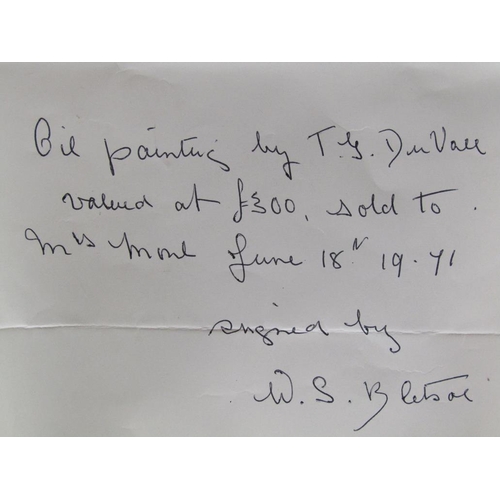 Oil painting by T.G. DuVall
valued at £300, sold to
Mrs Mont June 18th 19.71
signed by
W. S. Bletsoe